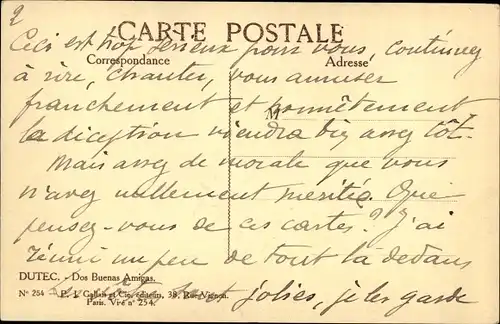 2
CARTE POSTALE
Ceci est trop sérieux pour vous, continuez
Correspondance
Adresse
à rire, chanter, vous amuser
franchement et honnêtement
M
la déception viendra bien assez tôt.
Mais assez de morale que vous
n'avez nullement méritée. Que
pensez-vous de ces cartes? J'ai
réuni un peu de tout là dedans
DUTEC. - Dos Buenas Amigas.
sont jolies, je les garde
N° 254 P. J. Gallais et Cie, éditeurs, 38, Rue Vignon.
Paris. Visé n° 254.